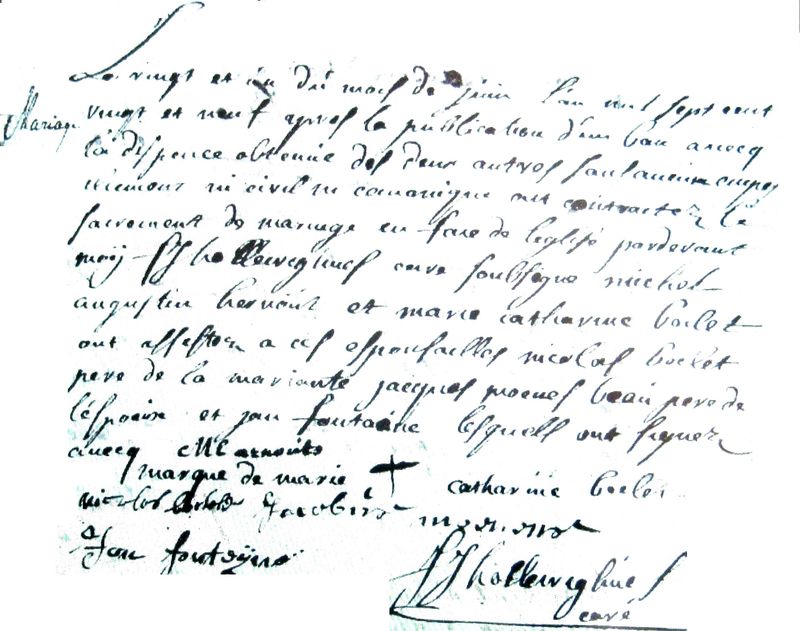 Le vingt et un du mois de juin l'an mil sept cent
Mariage
vingt et neuf apres la publication d'un ban avecq
la dispence obtenue des deux autres sans aucun empes
chement ni civil ni canonique ont contractez le
sacrement de mariage en face de l'eglise pardevant
moy curé soubsigné michel
augustin hernout et marie catharine boclet
ont assistez a ces espousailles nicolas boclet
pere de la mariante jacques moenes beau pere de
l'espoux et jan fontaine lesquels ont signez
avecq
marque de marie + catharine boclet
nicolas boclet Jacobus
Jan fonteyne
curé